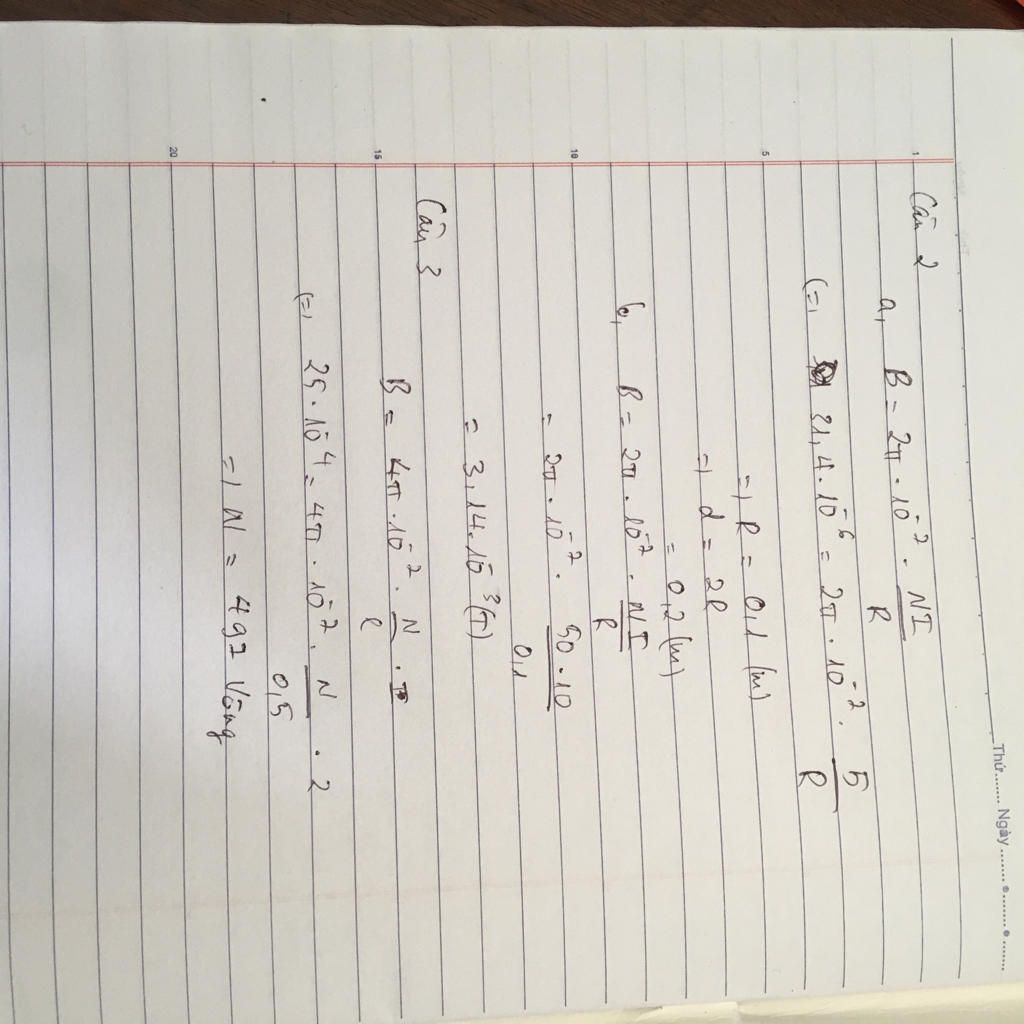 Thứ........ Ngày ........ • ........ • ........
1
Câu 2
a, B = 2π . 10⁻⁷ . NI/R
5
(=) 31,4 . 10⁻⁶ = 2π . 10⁻⁷ . 5/R
=) R = 0,1 (m)
=) d = 2R
= 0,2 (m)
b, B = 2π . 10⁻⁷ . NI/R
10
= 2π . 10⁻⁷ . 50 . 10/0,1
= 3,14 . 10⁻³ (T)
Câu 3
15
B = 4π . 10⁻⁷ . N/l . I
(=) 25 . 10⁻⁴ = 4π . 10⁻⁷ . N/0,5 . 2
=) N = 497 Vòng
20